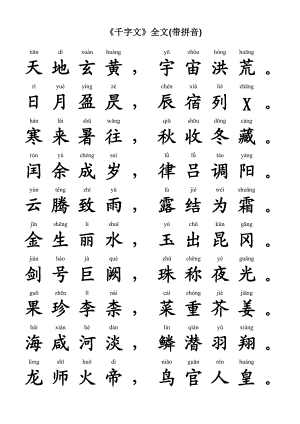 《千字文》全文(带拼音)
tiān dì xuán huáng yǔ zhòu hóng huāng
天地玄黄，宇宙洪荒。
rì yuè yíng chén sù liè
日月盈昃，辰宿列χ。
hán lái shǔ wǎng qiū shōu dōng cáng
寒来暑往，秋收冬藏。
rùn yú chéng suì lǜ lǚ tiáo yáng
闰余成岁，律吕调阳。
yún téng zhì yǔ lù jié wéi shuāng
云腾致雨，露结为霜。
jīn shēng lì shuǐ yù chū kūn gāng
金生丽水，玉出昆冈。
jiàn hào jù què zhū chēng yè guāng
剑号巨阙，珠称夜光。
guǒ zhēn lǐ nài cài zhòng jiè jiāng
果珍李柰，菜重芥姜。
hǎi xián hé dàn lín qián yǔ xiáng
海咸河淡，鳞潜羽翔。
lóng shī huǒ dì niǎo guān rén huáng
龙师火帝，鸟官人皇。